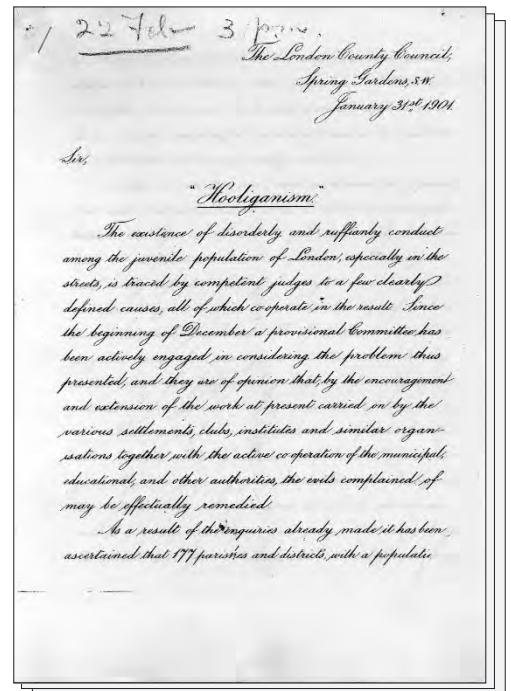 22 Feb 3 p.m.
The London County Council,
Spring Gardens, S.W.
January 31st 1901.
Sir,
"Hooliganism."
The existence of disorderly and ruffianly conduct
among the juvenile population of London, especially in the
streets, is traced by competent judges to a few clearly
defined causes, all of which co-operate in the result. Since
the beginning of December a provisional Committee has
been actively engaged in considering the problem thus
presented, and they are of opinion that, by the encouragement
and extension of the work at present carried on by the
various settlements, clubs, institutes and similar organ-
isations together with the active co-operation of the municipal,
educational, and other authorities, the evils complained of
may be effectually remedied.
As a result of the enquiries already made it has been
ascertained that 177 parishes and districts, with a populatio